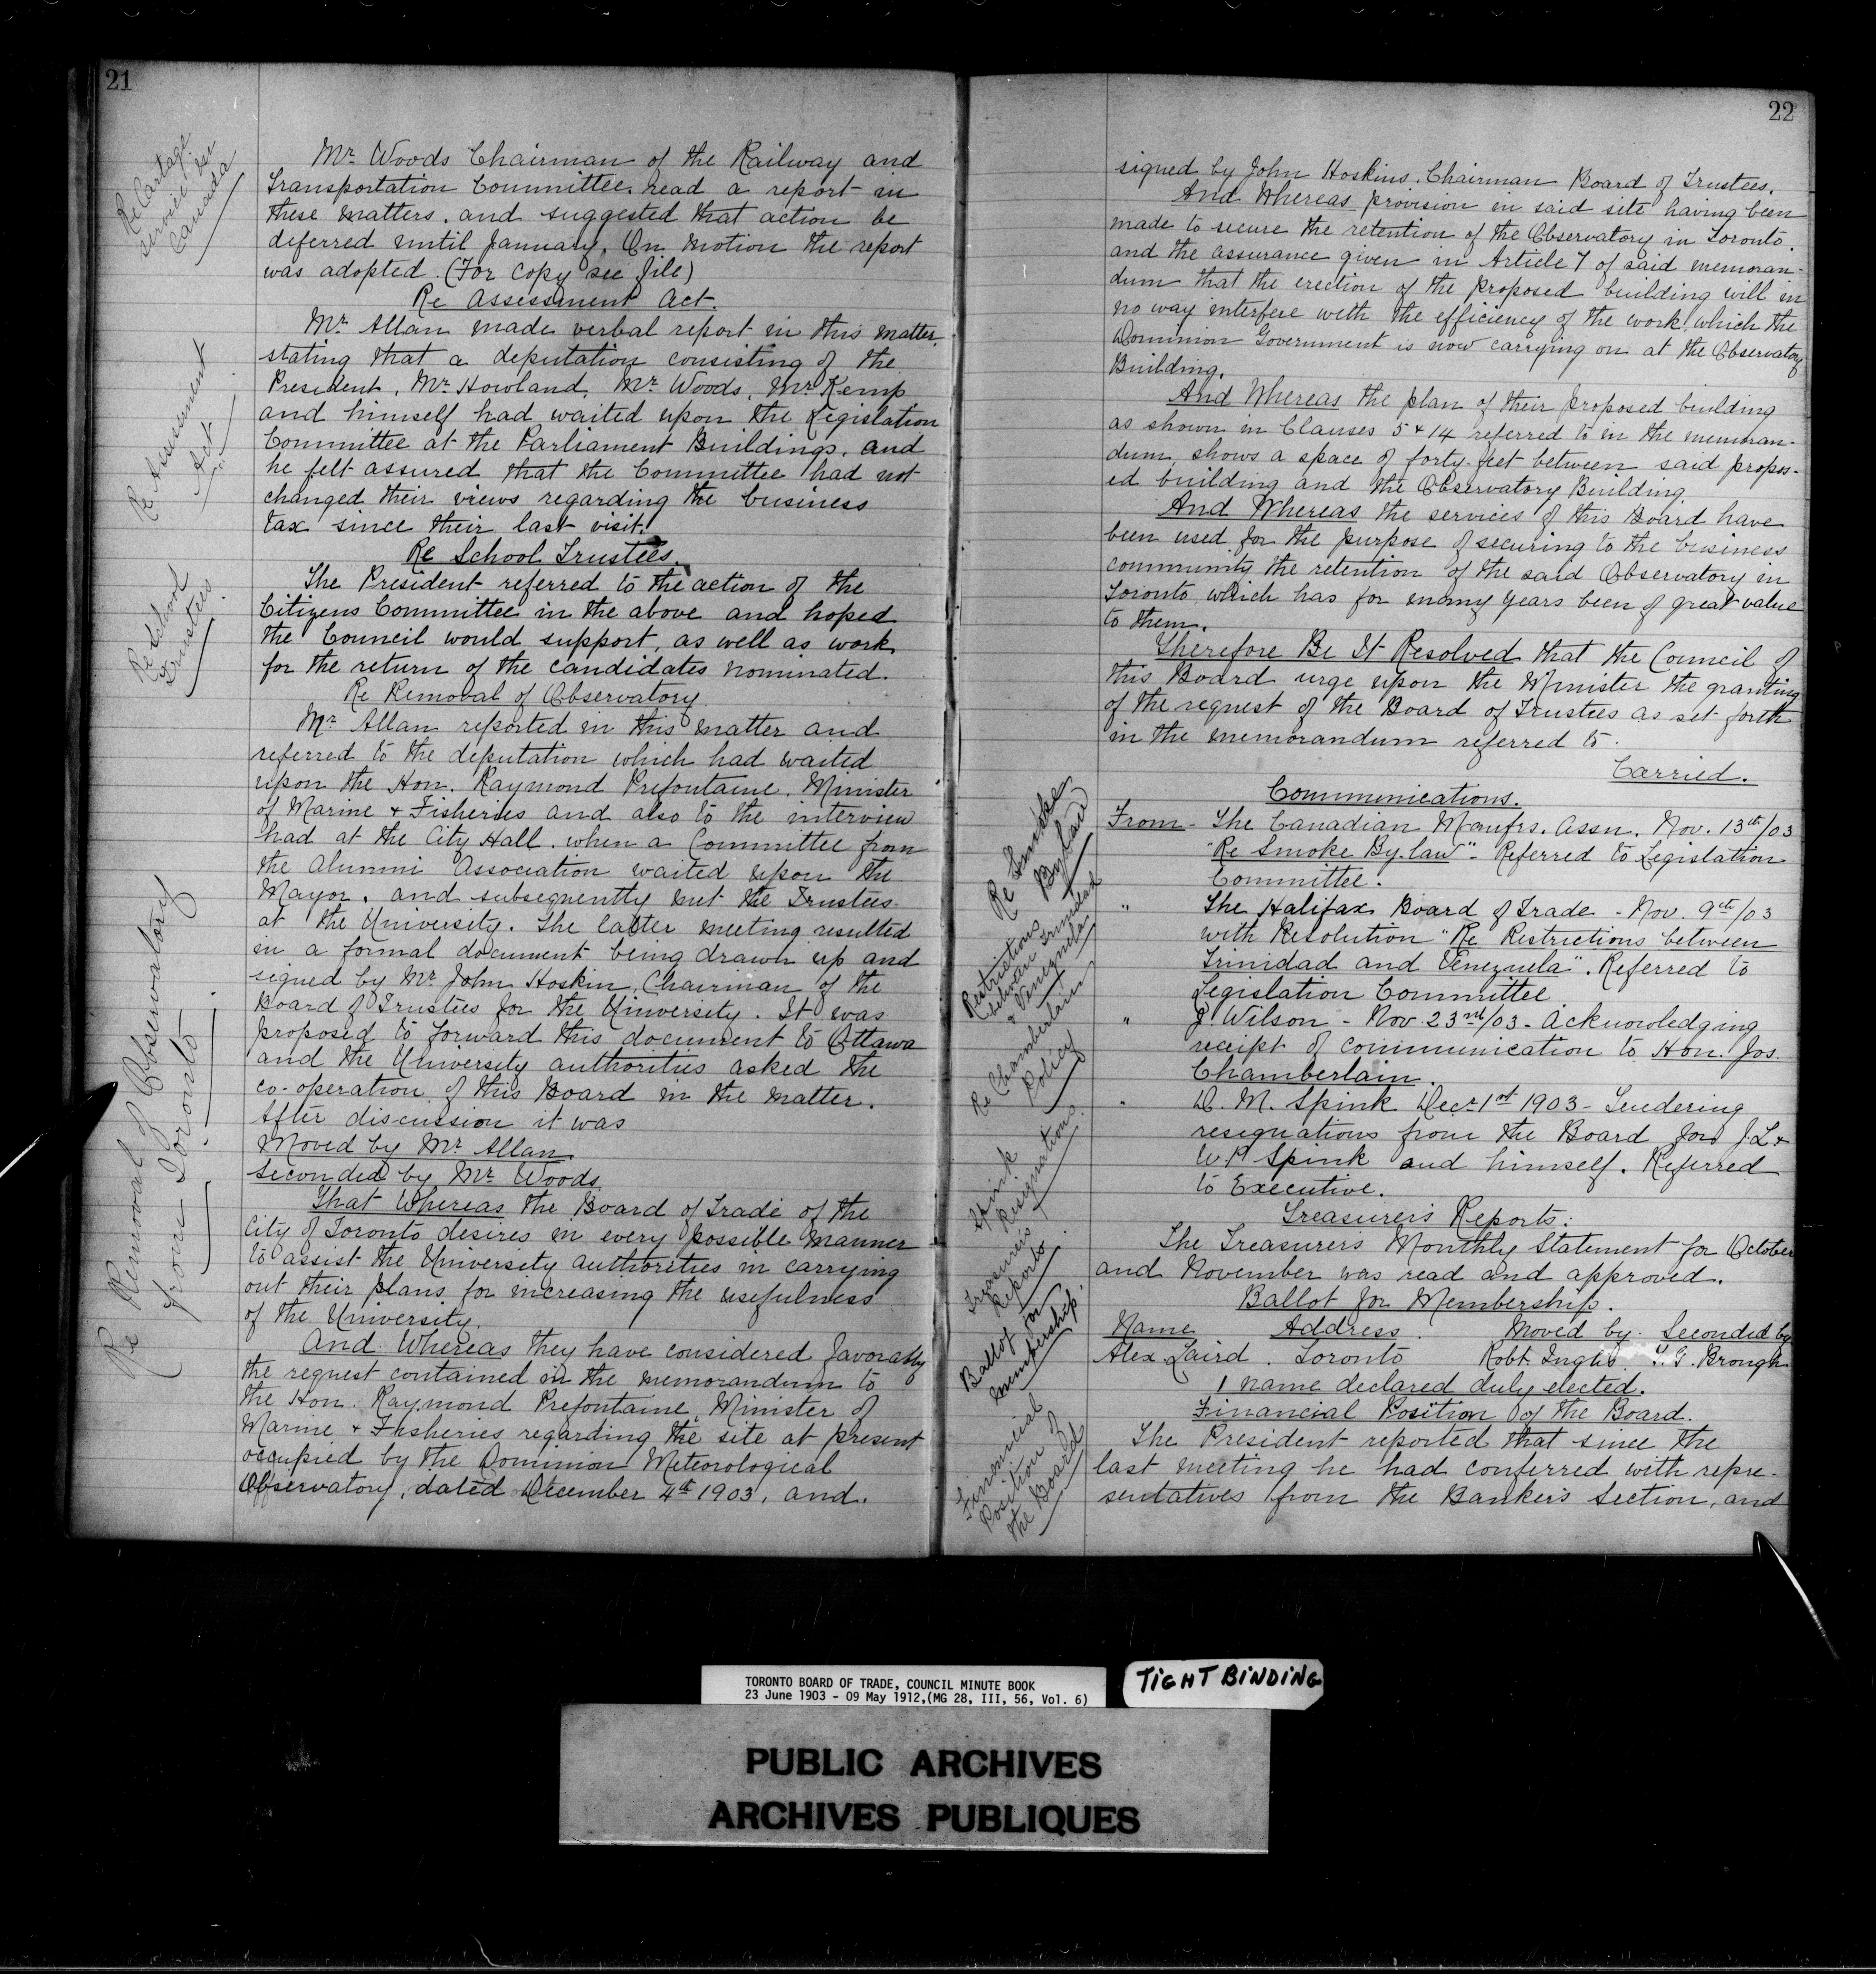 21
Re Cartage
service in
Canada
Mr. Woods Chairman of the Railway and
Transportation Committee, read a report in
these matters, and suggested that action be
deferred until January. On motion the report
was adopted. (For copy see file)
Re Assessment Act.
Re Assessment
Act
Mr. Allan made verbal report in this matter,
stating that a deputation consisting of the
President, Mr. Howland, Mr. Woods, Mr. Kemp
and himself had waited upon the Legislation
Committee at the Parliament Buildings, and
he felt assured that the Committee had not
changed their views regarding the business
tax since their last visit.
Re School Trustees.
Re School
Trustees.
The President referred to the action of the
Citizens Committee in the above and hoped
the Council would support, as well as work
for the return of the candidates nominated.
Re Removal of Observatory
Re Removal of Observatory
from Toronto
Mr. Allan reported in this matter and
referred to the deputation which had waited
upon the Hon. Raymond Prefontaine, Minister
of Marine & Fisheries and also to the interview
had at the City Hall, when a Committee from
the Alumni Association waited upon the
Mayor, and subsequently met the Trustees
at the University. The latter meeting resulted
in a formal document being drawn up and
signed by Mr. John Hoskin, Chairman of the
Board of Trustees for the University. It was
proposed to forward this document to Ottawa
and the University authorities asked the
co-operation of this Board in the matter.
After discussion it was
Moved by Mr. Allan.
Seconded by Mr. Woods,
That Whereas the Board of Trade of the
City of Toronto desires in every possible manner
to assist the University authorities in carrying
out their plans for increasing the usefulness
of the University.
And Whereas they have considered favorably
the request contained in the memorandum to
the Hon. Raymond Prefontaine, Minister of
Marine & Fisheries regarding the site at present
occupied by the Dominion Meteorological
Observatory, dated December 4th 1903, and.
22
signed by John Hoskins, Chairman Board of Trustees.
And Whereas provision in said site having been
made to secure the retention of the Observatory in Toronto.
and the assurance given in Article 7 of said memoran-
dum that the erection of the proposed building will in
no way interfere with the efficiency of the work, which the
Dominion Government is now carrying on at the Observatory
Building.
And Whereas the plan of their proposed building
as shown in Clauses 5 & 14 referred to in the memoran-
dum, shows a space of forty feet between said propos-
ed building and the Observatory Building.
And Whereas the services of this Board have
been used for the purpose of securing to the business
community the retention of the said Observatory in
Toronto which has for many years been of great value
to them.
Therefore Be It Resolved that the Council of
this Board urge upon the Minister the granting
of the request of the Board of Trustees as set forth
in the memorandum referred to.
Carried.
Communications.
Re Smoke
By law
From - The Canadian Manfrs. Assn. Nov. 13th/03
"Re Smoke By-law" - Referred to Legislation
Committee.
Restrictions
between Trinidad
& Venezuela
" The Halifax Board of Trade - Nov. 9th/03
with Resolution "Re Restrictions between
Trinidad and Venezuela". Referred to
Legislation Committee
Re Chamberlain
Policy
" J. Wilson - Nov. 23rd/03 - Acknowledging
receipt of communication to Hon. Jos.
Chamberlain.
Spink
Resignations.
" D. M. Spink Decr 1st 1903 - Tendering
resignations from the Board for J.L. &
W.P. Spink and himself. Referred
to Executive.
Treasurer's Reports:
Treasurer's
Reports
The Treasurer's Monthly Statement for October
and November was read and approved.
Ballot for Membership.
Ballot for
Membership.
Name Address. Moved by. Seconded by
Alex. Laird. Toronto Robt. Inglis. T.G. Brough
1 name declared duly elected.
Financial Position of the Board.
Financial
Position of
the Board
The President reported that since the
last meeting he had conferred with repre-
sentatives from the Bankers Section, and
TORONTO BOARD OF TRADE, COUNCIL MINUTE BOOK
23 June 1903 - 09 May 1912,(MG 28, III, 56, Vol. 6)
TIGHT BINDING
PUBLIC ARCHIVES
ARCHIVES PUBLIQUES